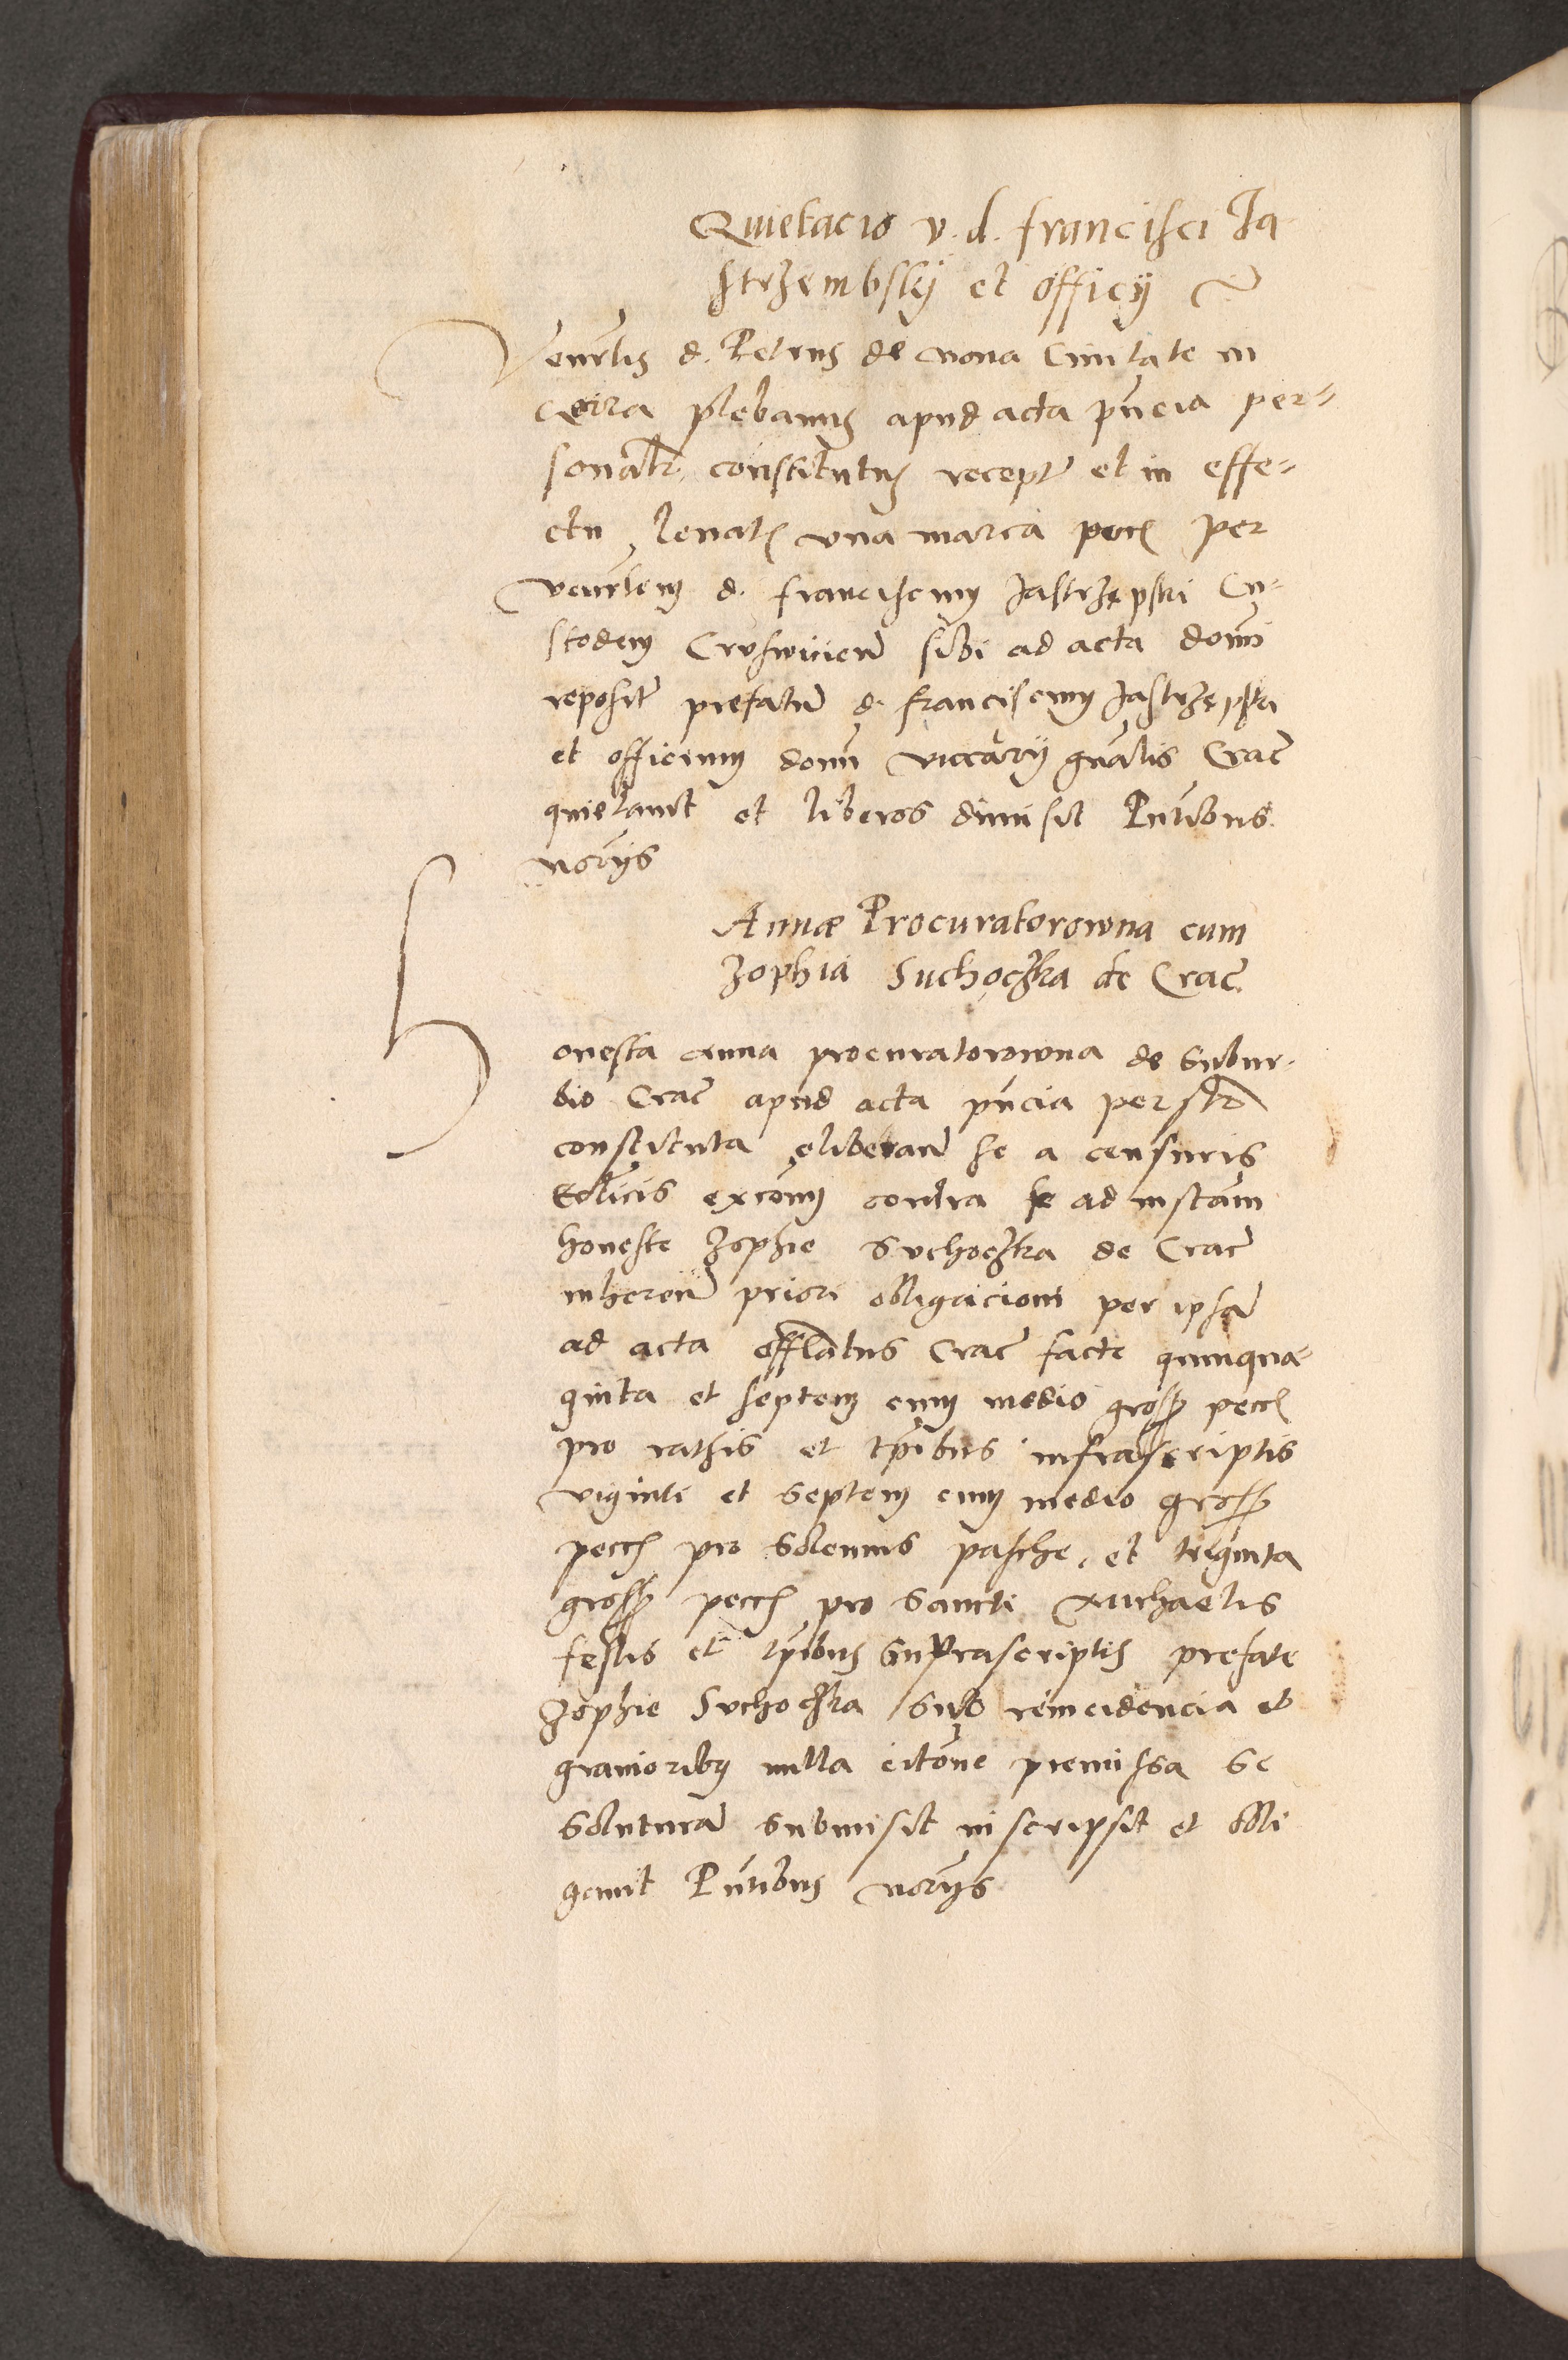 Quietacio v. d. francisci Ja
strzembskÿ et officÿ
Venrlis d. Petrus de nova Civitate in
plebanus apud acta pncia per=
sonalr constitutus recepta et in effe=
ctu levata una marca pecc per
venrlem d. franciscum Jastrzepski Cu=
stodem Crusvicien sibi ad acta domi
reposita prefatum d. franciscum Jastrzepski
et officium domi vicarÿ gnalis Crac
quietavit et liberos dimisit Pntibus
norÿs
Annæ Procuratorowna cum
Zophia Suchoczka de Crac
Honesta Anna procuratorowna de Subur=
bio Crac apud acta pncia per se
constituta eliberan se a censuris
Eclicis excom contra se ad instam
honeste Zophie Suchoczka de Crac
inheren priori obligacioni per ipsam
ad acta offlatus Crac facte quinqua=
ginta et septem cum medio gross pecc
pro rathis et tpibus infrascriptis
viginti et septem cum medio gross
pecc pro solennis pasche, et triginta
gross pecc pro sancti Michaelis
festis et tpibus suprascriptis prefate
Zophie Suchoczka sub reincidencia et
gravioribus nulla citone premissa se
soluturam submisit inscripsit et obli
gavit Pntibus norÿs